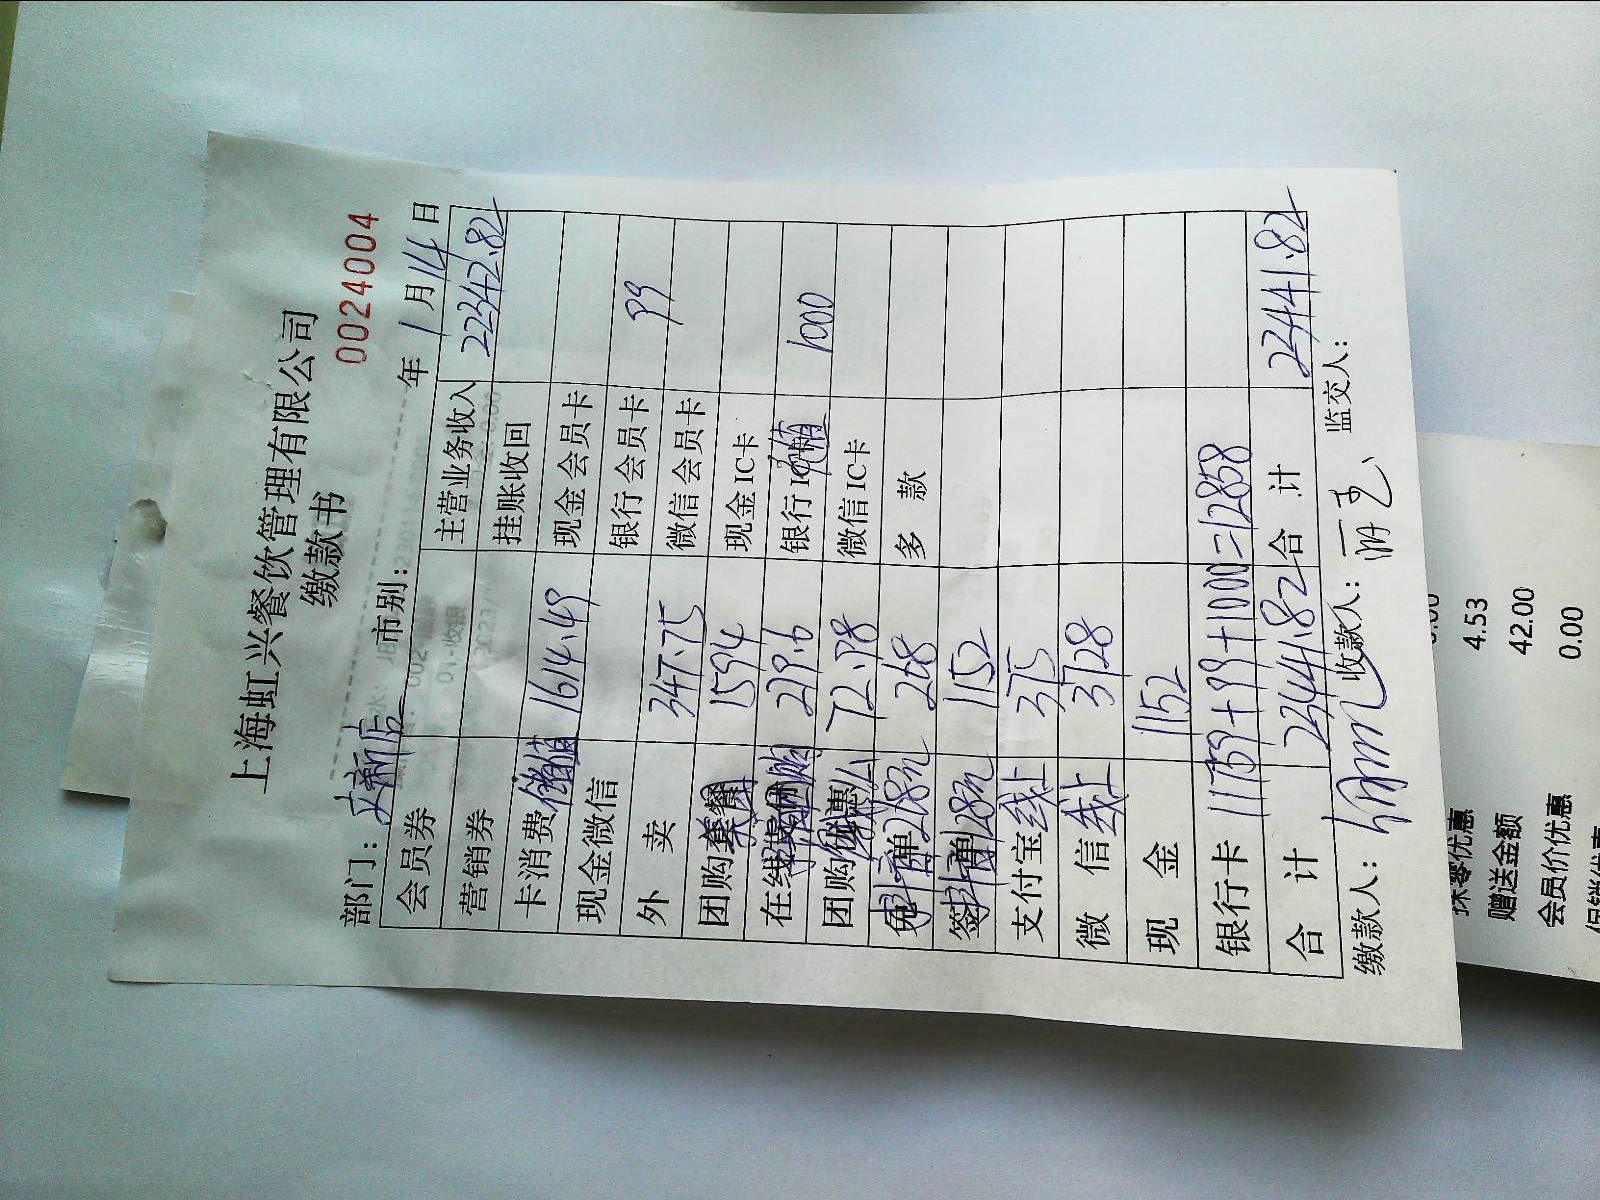 上海虹兴餐饮管理有限公司
缴款书
0024004
部门： 店 市别： 年 1 月 14 日
会员券 主营业务收入 22342.82
营销券 挂账收回
卡消费 储值 1614.49 现金会员卡
现金微信 银行会员卡 99
外 卖 347.75 微信会员卡
团购套餐 1594 现金IC卡
在线 219.6 银行IC 储值 1000
团购优惠 72.98 微信IC卡
免单 28元 268 多 款
签单 128元 1152
支付宝 线上 375
微 信 线上 3728
现 金 1152
银行卡 11759+99+1000=12858
合 计 23441.82 合 计 23441.82
缴款人： 收款人： 监交人：
4.53
抹零优惠 42.00
赠送金额 0.00
会员价优惠